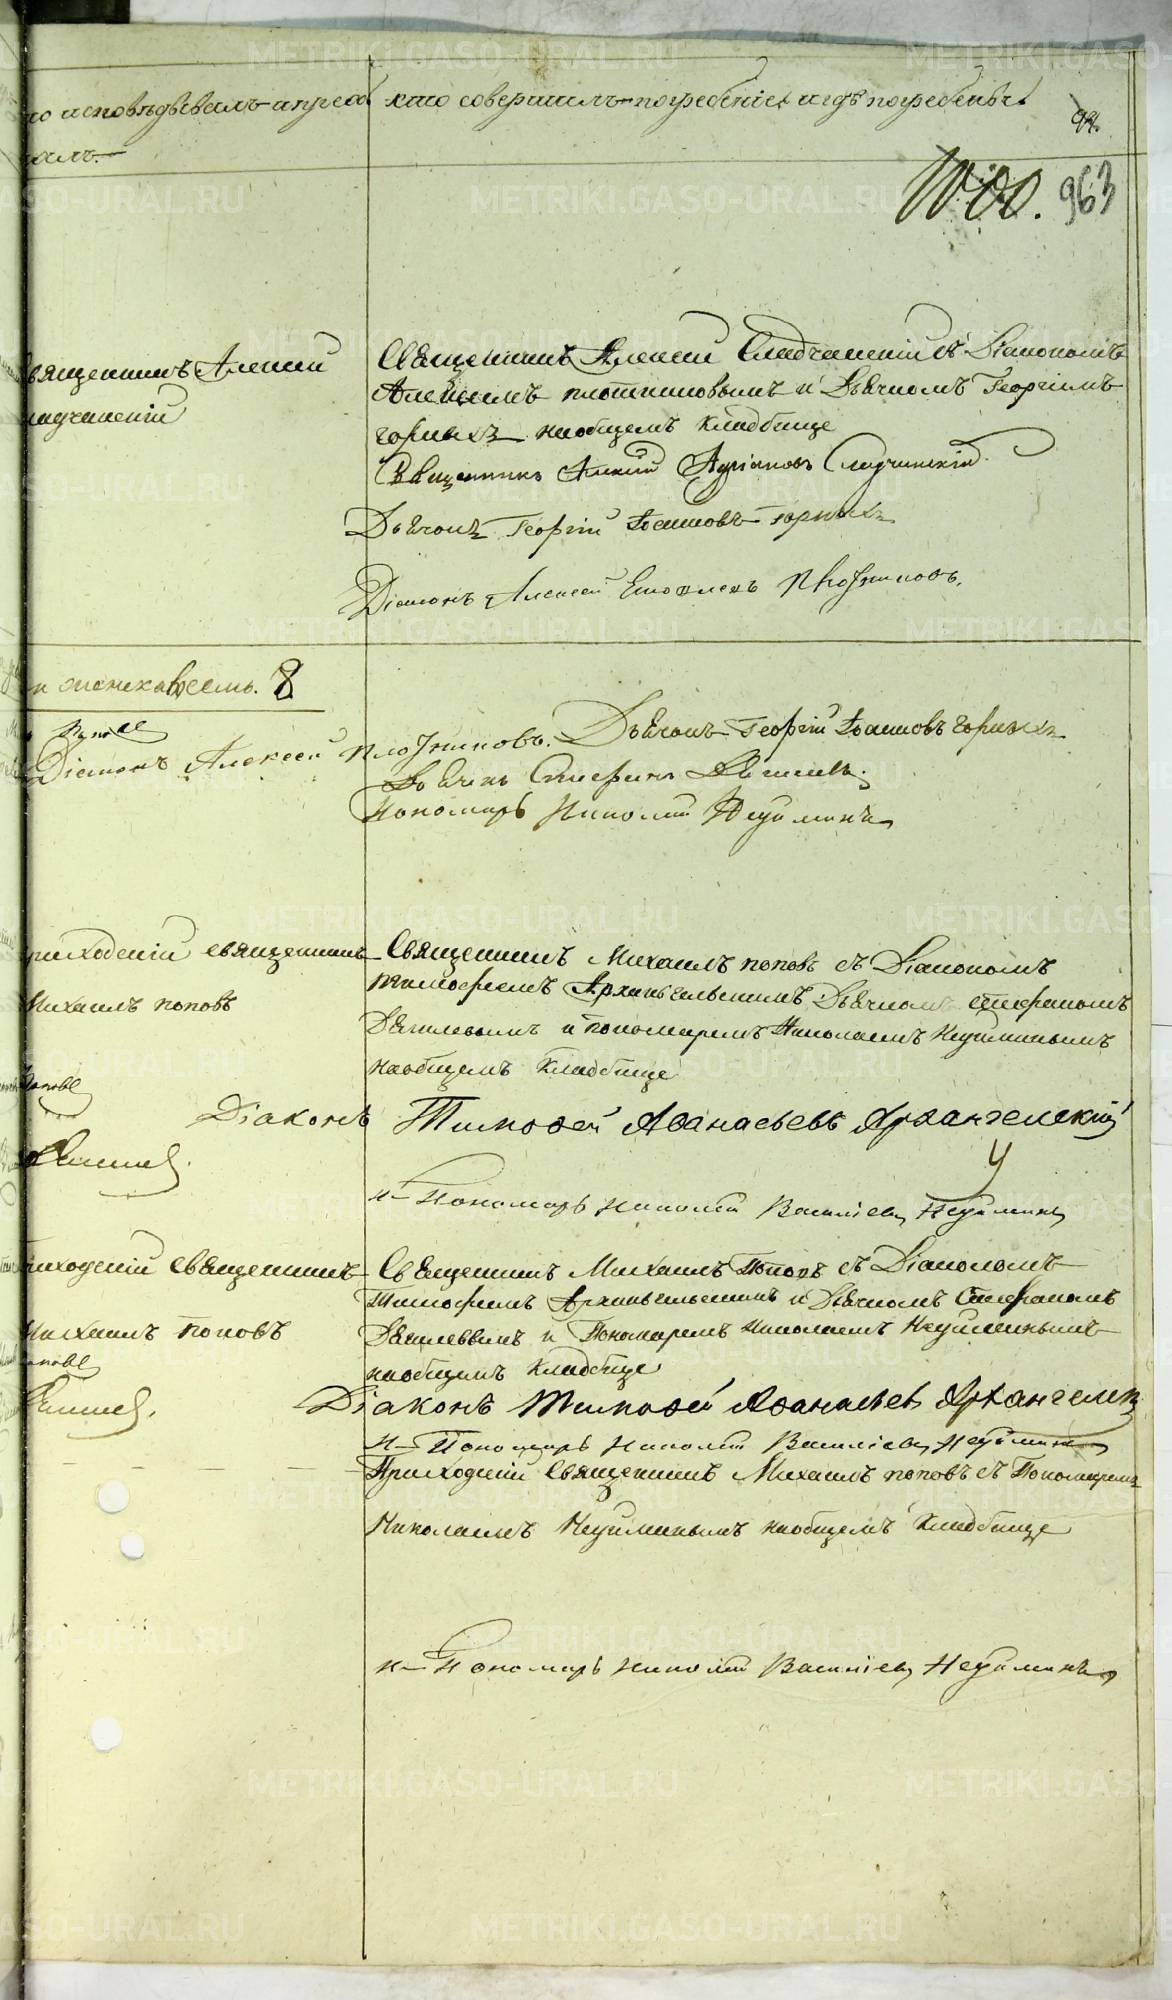 то исповѣдывалъ и прео кто совершилъ погребеніе и гдѣ погребены
алъ.
963
вященникъ Алексій
ладчинскій
Священникъ Алексій Сладчинскій съ Діакономъ
Алексѣемъ плотниковымъ и Дьячкомъ Георгіемъ
горныхъ наобщемъ кладбище
Священникъ Алексій Адріановъ Сладчинскій
Дьячокъ Георгій Іоанновъ Горныхъ
Діаконъ Алексей плотниковъ.
и женска восемь. 8
Поповъ
Діаконъ Алексей плотниковъ. Дьячокъ Георгій Іоанновъ Горныхъ
Дьячекъ Стефанъ
Пономарь Николай Неуйминъ
риходскій священникъ
Михаилъ поповъ
Священникъ Михаилъ поповъ съ Діакономъ
тимофеемъ Архангельскимъ Дьячкомъ стефаномъ
и пономаремъ Николаемъ Неуйминымъ
наобщемъ кладбище
Поповъ
Діаконъ Тимофей Афанасьевъ Архангелскій
и Пономарь Николай Васильевъ Неуйминъ
риходскій священникъ
Михаилъ поповъ
Священникъ Михаилъ Поповъ съ Діакономъ
Тимофеемъ Архангельскимъ и Дьячкомъ Стефаномъ
и Пономаремъ Николаемъ Неуйминымъ
наобщемъ кладбище
Діаконъ Тимофей Афанасьев Архангелск
и Пономарь Николай Васильевъ Неуйминъ
Приходскій священникъ Михаилъ поповъ съ Пономаремъ
Николаемъ Неуйминымъ наобщемъ кладбище
и Пономарь Николай Васильевъ Неуйминъ
METRIKI.GASO-URAL.RU